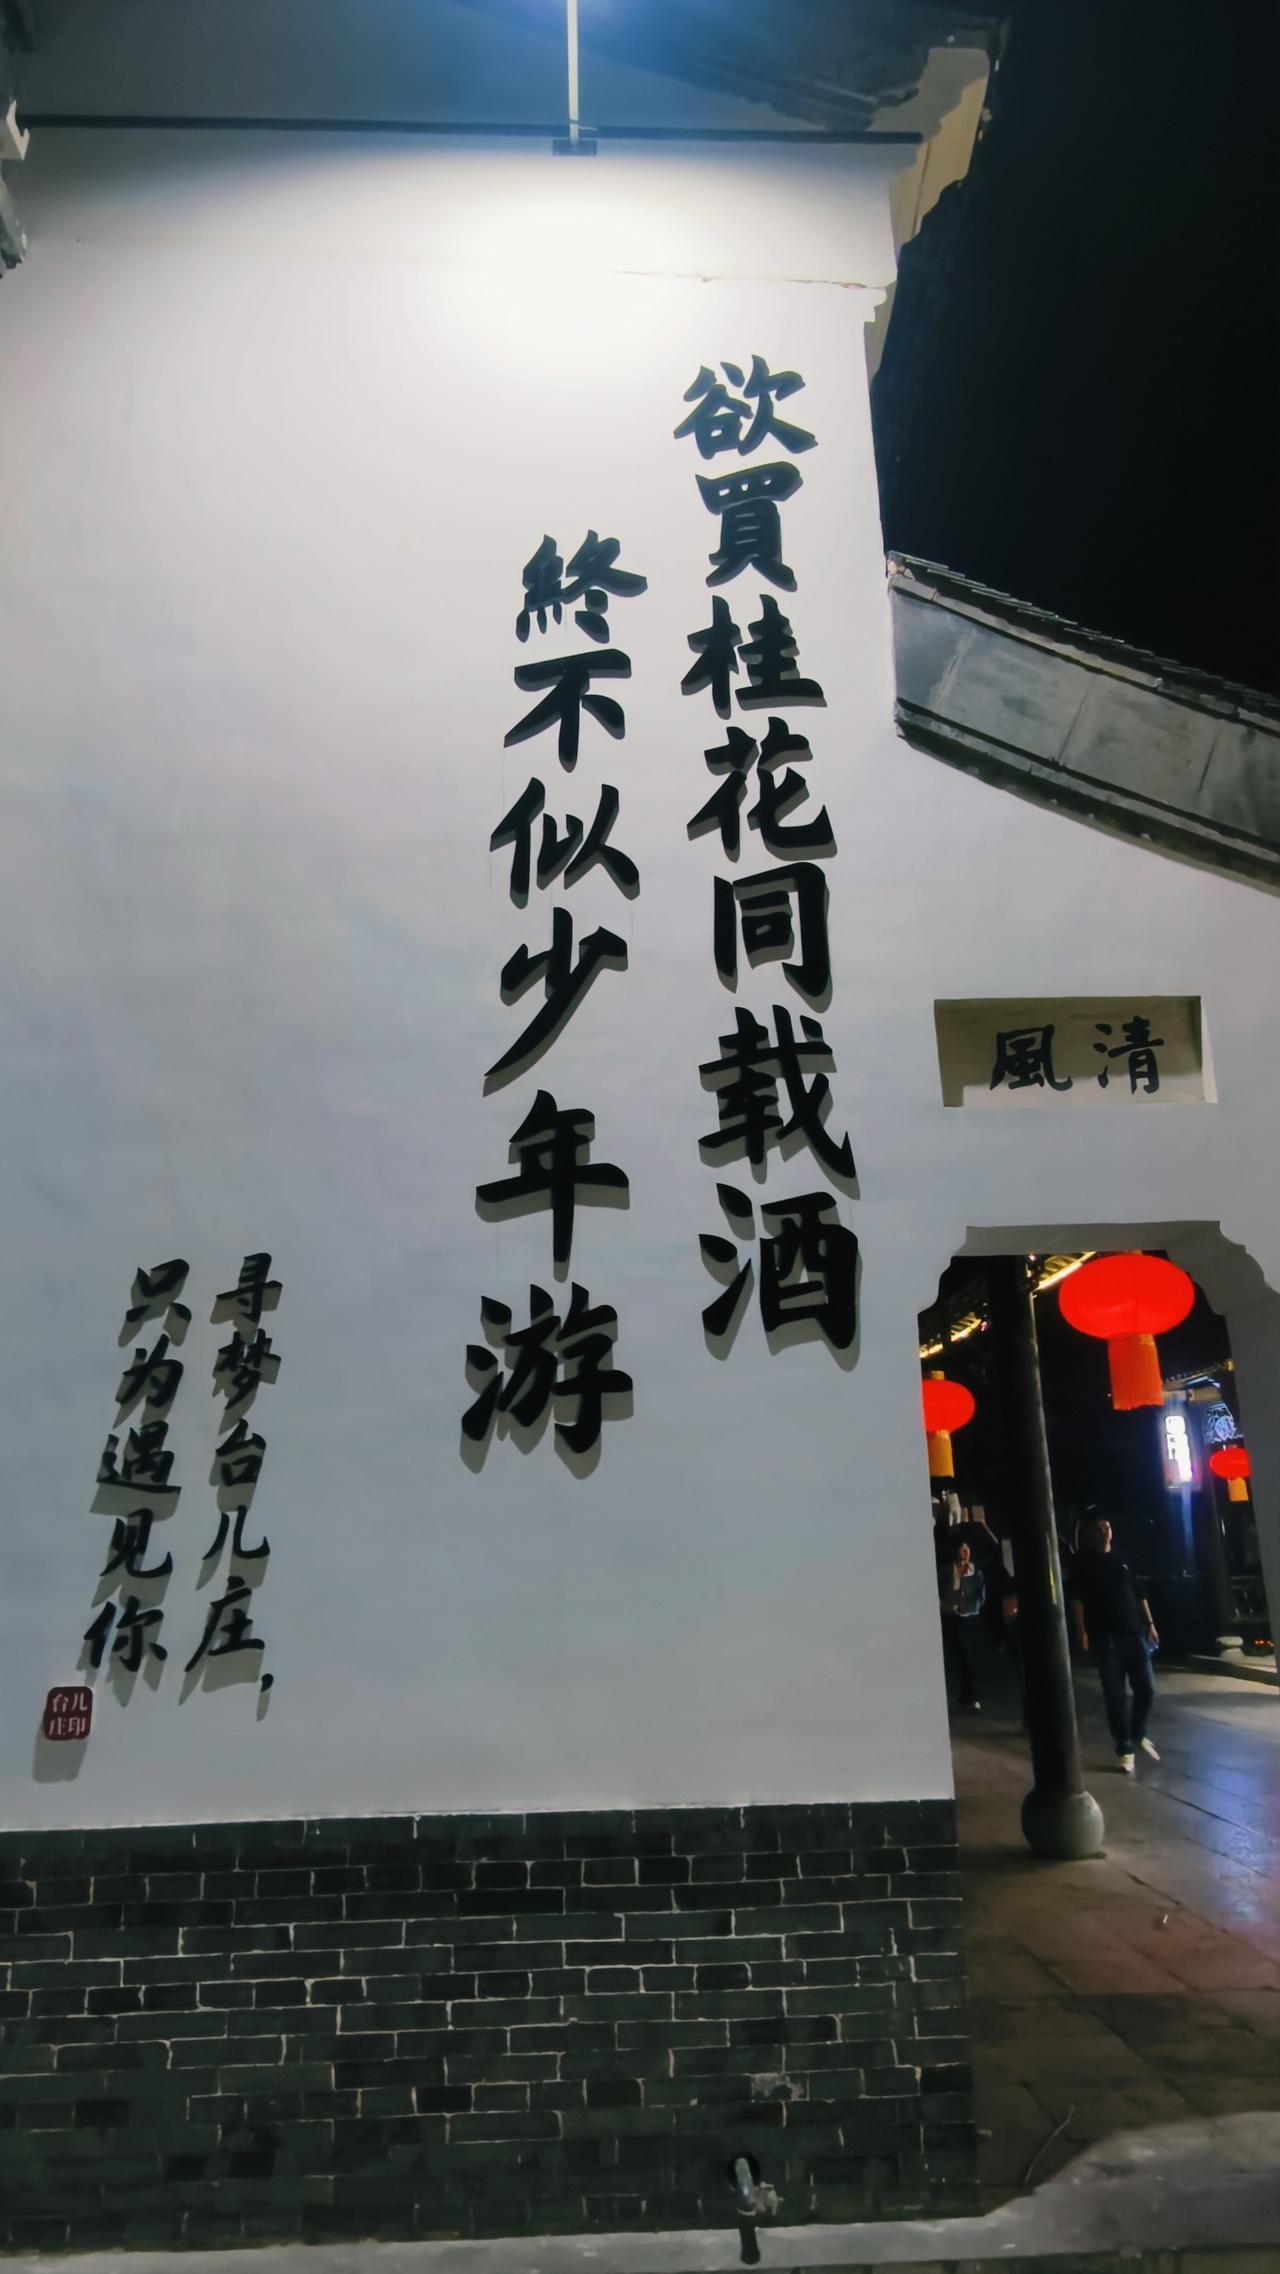 欲買桂花同载酒
終不似少年游
清風
寻梦台儿庄，
只为遇见你
儿印
台庄